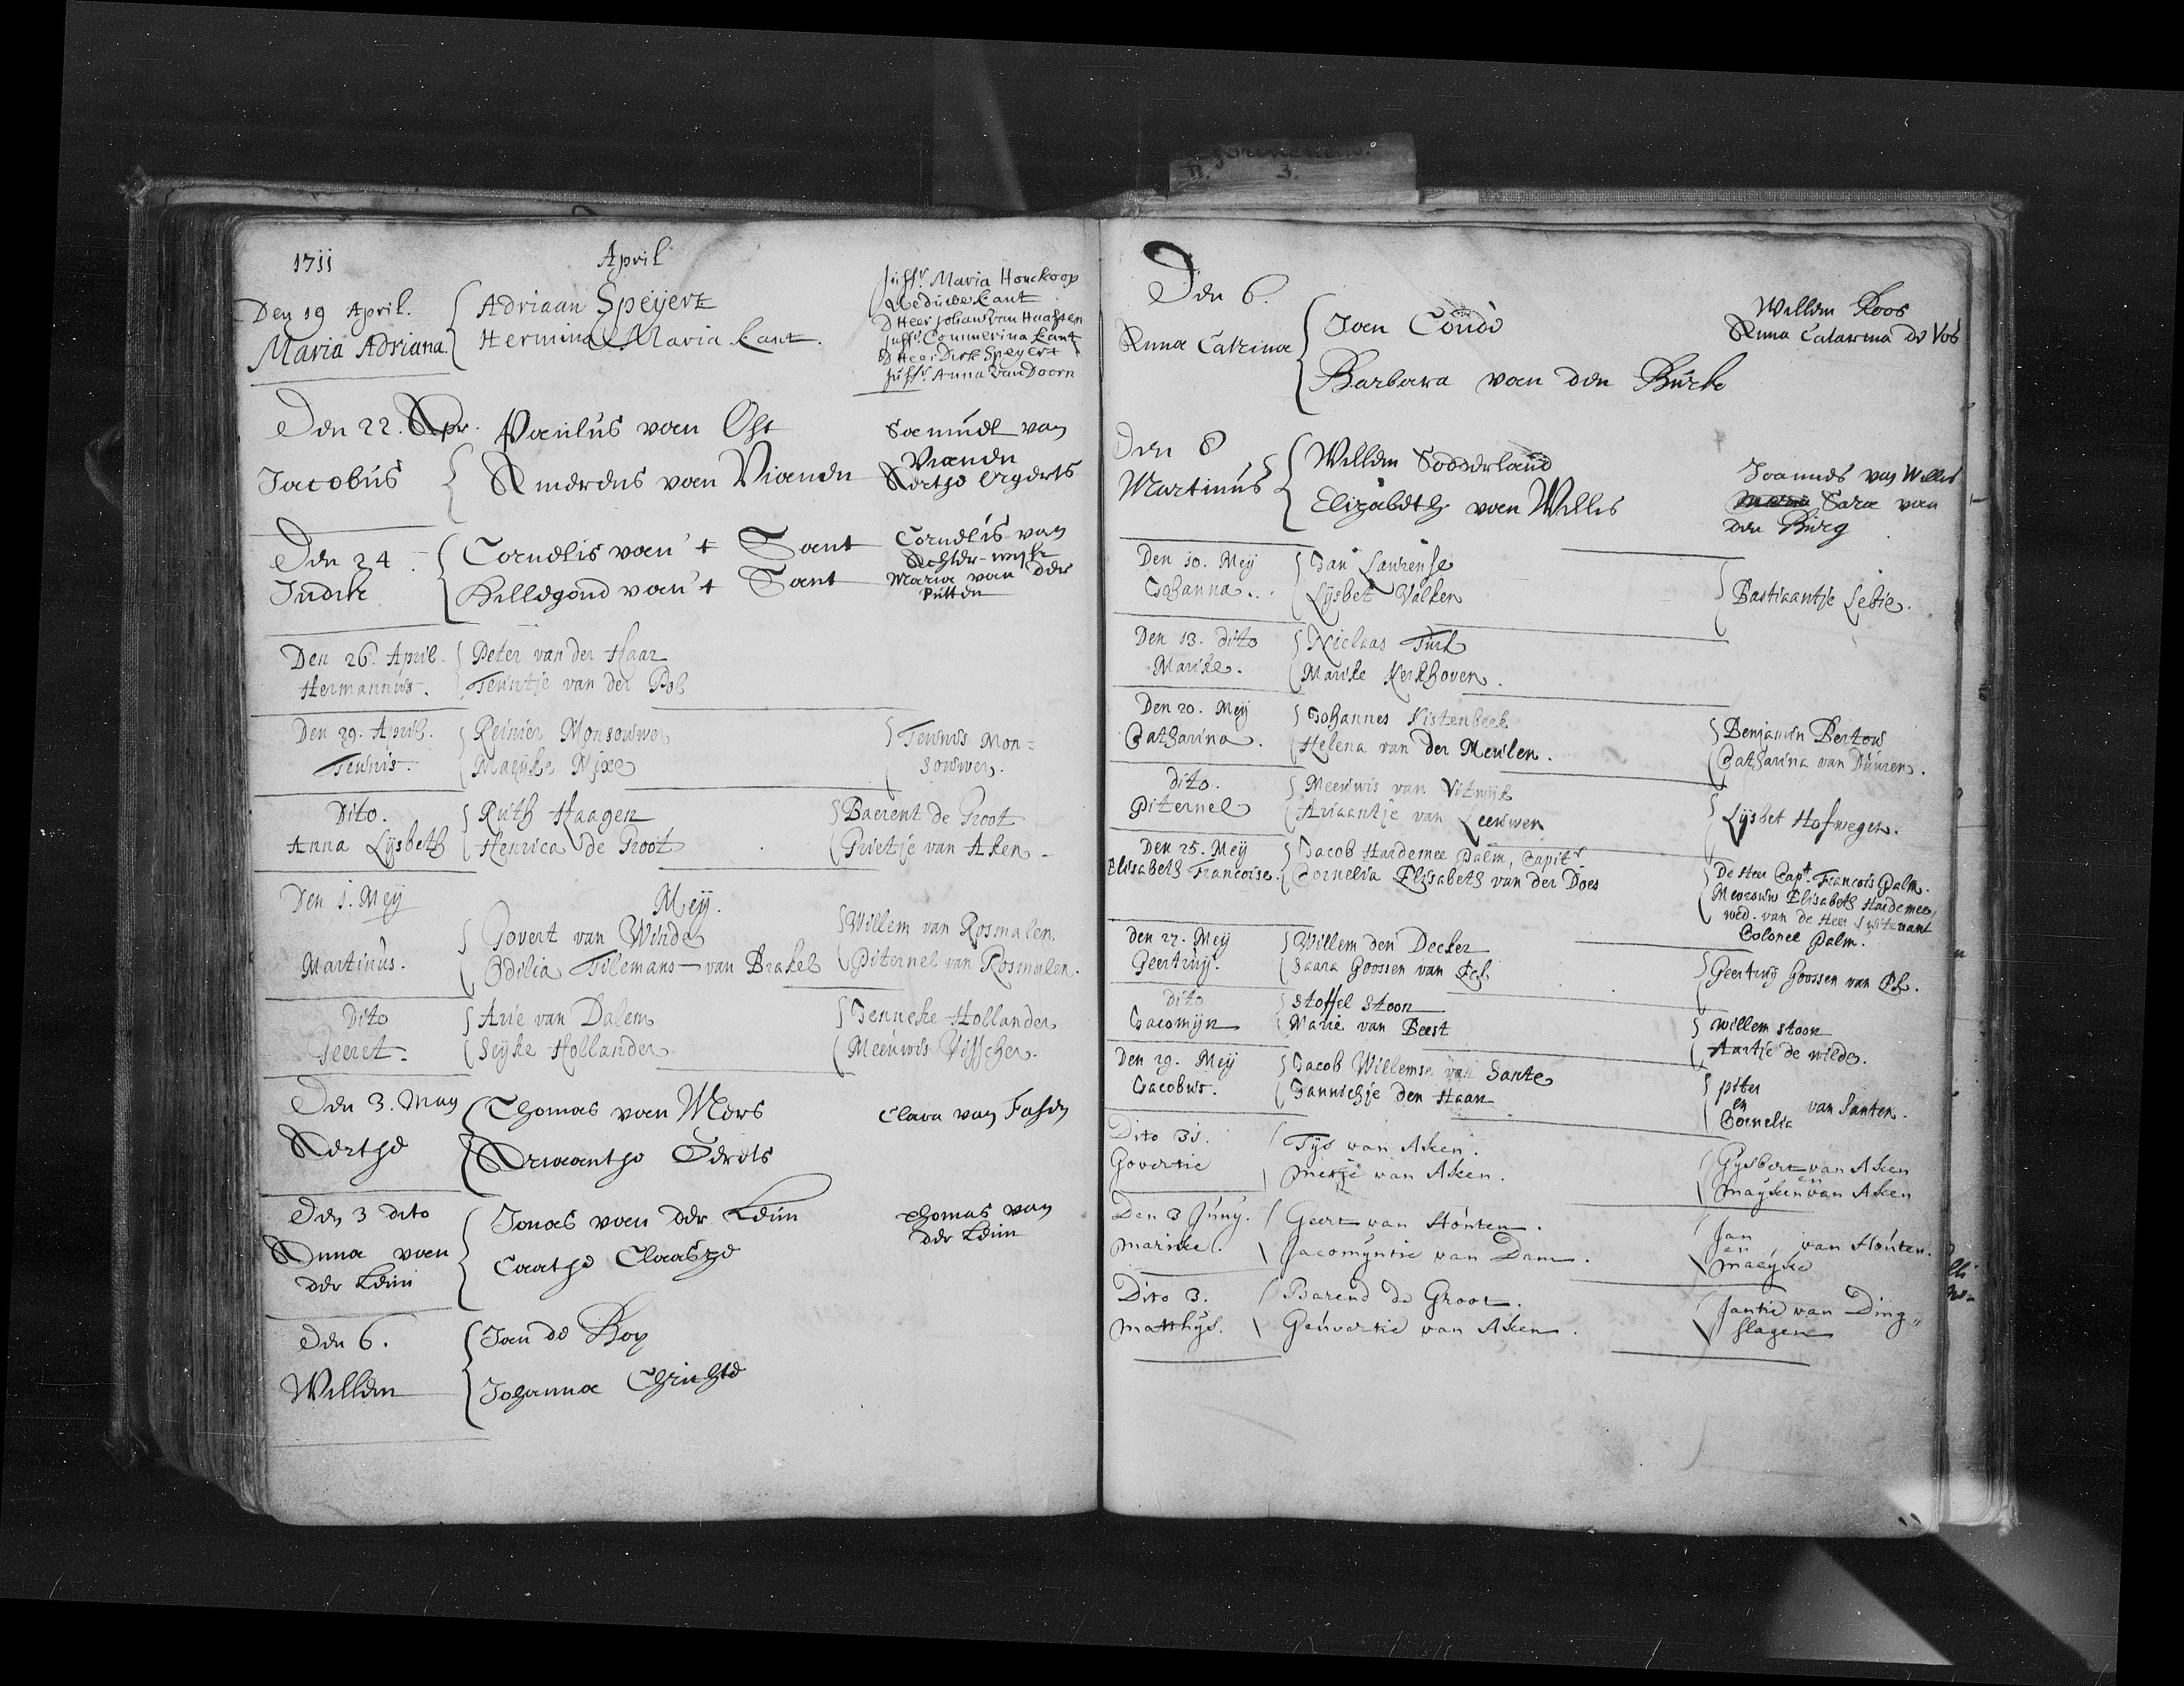 Gorinchem.
3.
1711
April
Den 19 April.
Maria Adriana.
Adriaan Speijert
Hermina Maria Kant.
Juffr. Maria Honckoop
Weduwe Kant
D Heer Johan van Haaften
Juffr. Commerina Kant
D Heer Dirk Speyert
Juffr. Anna van Doorn
Den 22. Apr.
Jacobus
Paulus van Ost
Anderens van Vianen
Samuel van
Vianen
Aertge
Den 24
Cornelis van 't Sant
Hillegond van 't Sant
Cornelis van
Achter-wijk
Maria van der
Putten
Den 26. April.
Hermannus.
Peter van der Haar
Teuntje van der Pol
Den 29. April.
Teunis.
Reinier Monsouwer
Maeyke Mixe
Teunis Mon=
souwer.
Dito.
Anna Lijsbeth
Ruth Haagen
Henrica de Groot
Baerent de Groot
Grietje van Aken
Den 1. Meij
Meij.
Martinus.
Govert van Winde
Odilia Tilemans van Brakel
Willem van Rosmalen
Piternel van Rosmalen.
Dito
Geeret.
Arie van Dalem
Seijke Hollander
Jenneke Hollander
Meeuwis Visscher.
Den 3. May
Aertge
Thomas van Mers
Ariaantge Gerets
Clara van
Den 3 dito
Anna van
der Leun
Jonas van der Leun
Caatge Claasze
Thomas van
der Leun
Den 6.
Willem
Jan de Roy
Johanna
Den 6.
Anna Catrina
Jan Coude
Barbara van den Burk
Willem Roos
Anna Catarina de Vos
Den 8
Martinus
Willem Sodderland
Elizabeth van Willis
Joannes van Willis
Sara van
den Burg
Den 10. Meij
Johanna.
Jan Laurense
Lijsbet Valken
Bastiaantje Lebie.
Den 13. dito
Marike.
Niclaas Turk
Marike Kerkhoven.
Den 20. Meij
Catharina.
Johannes Kistenbeek
Helena van der Meulen.
Benjamin Bertou
Catharina van Duuren.
dito.
Piternel
Meeuwis van Uitwijk
Ariaantje van Leeuwen
Lijsbet Hofwegen.
Den 25. Meij
Elisabeth Francoise.
Jacob Hardemee Palm, Capit.
Cornelia Elisabeth van der Does
De Heer Capt. Francois Palm.
Mevrouw Elisabeth Hardemee,
wed. van de Heer Luitenant
Colonel Palm.
den 27. Meij
Geertruij.
Willem den Decker
Saara Goossen van Eck
Geertruij Goossen van Ek.
dito
Jacomijn
Stoffel Stoon
Marie van Beest
Willem Stoon
Aartje de Wilde.
Den 29. Meij
Jacobus.
Jacob Willemse van Sante
Jannichje den Haan
piter
en
Cornelia
van Santen.
Dito 31.
Govertie
Tijs van Aken.
Metje van Aken.
Gysbert van Aken
en
Mayken van Aken
Den 3 Juny.
Marike.
Geert van Houten.
Jacomyntie van Dam.
Jan
en
Maeyke
van Houten.
Dito 3.
Matthys.
Barend de Groot.
Geuvertie van Aken.
Jantie van Ding„
slagen